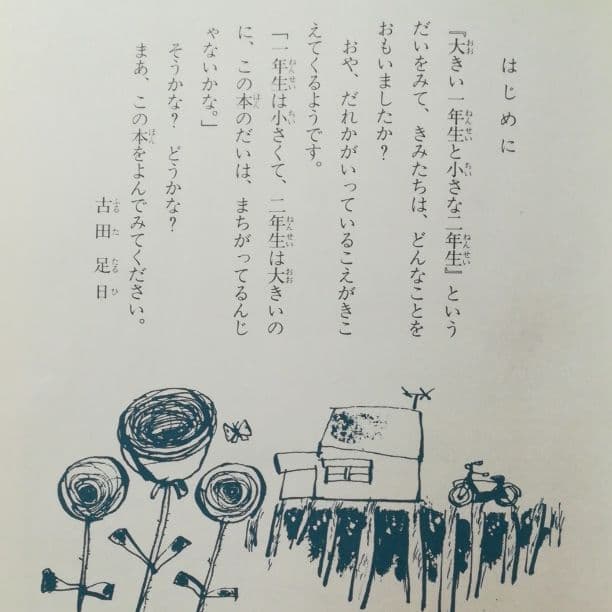 はじめに
『大きい一年生と小さな二年生』という
だいをみて、きみたちは、どんなことを
おもいましたか?
おや、だれかがいっているこえがきこ
えてくるようです。
「一年生は小さくて、二年生は大きいの
に、この本のだいは、まちがってるんじ
ゃないかな。」
そうかな? どうかな?
まあ、この本をよんでみてください。
古田足日